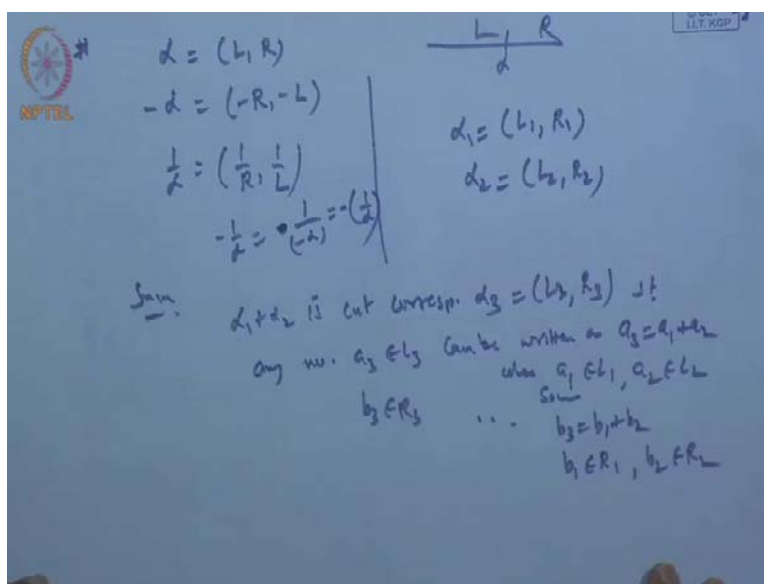 NPTEL
I.I.T. KGP
# α = (L, R)
L, R
α
-α = (-R, -L)
α₁ = (L₁, R₁)
1/α = (1/R, 1/L)
α₂ = (L₂, R₂)
-1/α = 1/(-α) = -(1/α)
Sum. α₁+α₂ is cut corresp. α₃ = (L₃, R₃) st
any no. a₃ ∈ L₃ can be written as a₃ = a₁+a₂
when a₁ ∈ L₁, a₂ ∈ L₂
b₃ ∈ R₃ ... b₃ = b₁+b₂
b₁ ∈ R₁, b₂ ∈ R₂